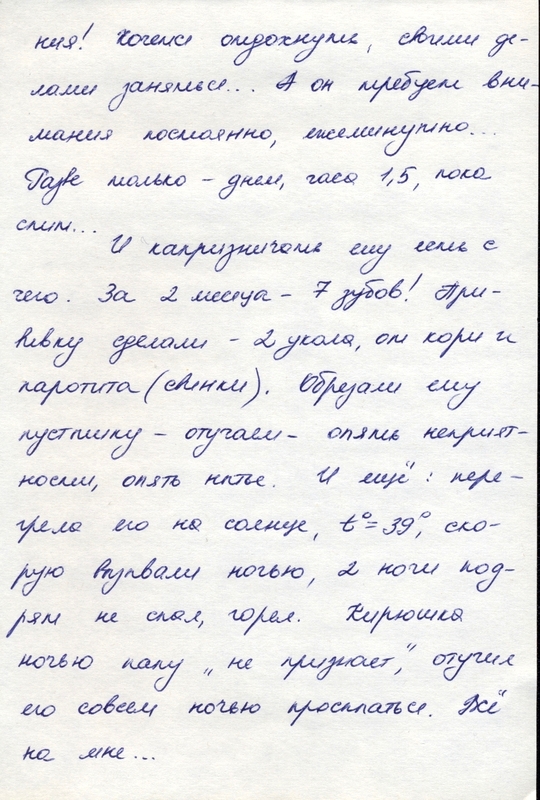 ния! Хочется отдохнуть, своими де-
лами заняться... А он требует вни-
мания постоянно, ежеминутно...
Разве только – днем, часа 1,5, пока
спит...
И капризничать ему есть с
чего. За 2 месяца – 7 зубов! При-
вивку сделали – 2 укола, от кори и
паротита (свинки). Обрезали ему
пустышку – отучаем – опять неприят-
ности, опять нытье. И ещё: пере-
грела его на солнце, t°= 39°, ско-
рую вызвали ночью, 2 ночи под-
ряд не спал, горел. Кирюшка
ночью папу „не признает", отучил
его совсем ночью просыпаться. Всё
на мне...